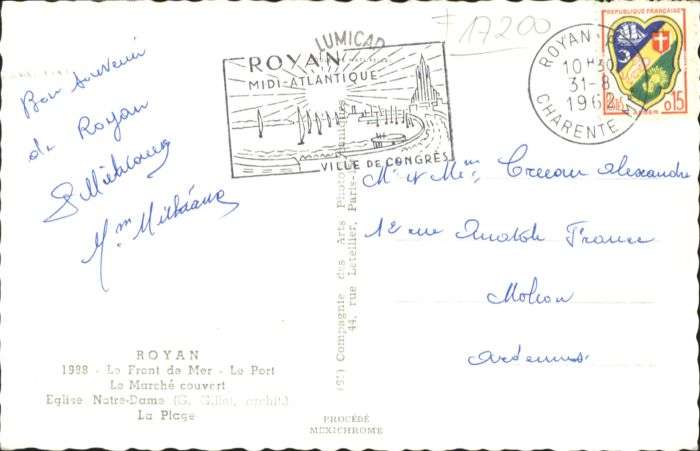 F 17200
LUMICAP
ROYAN
MIDI-ATLANTIQUE
VILLE DE CONGRÈS
ROYAN
10H30
31-8
196
CHARENTE
REPUBLIQUE FRANÇAISE
ALGER
0,15
Bon Souvenir
de Royan
Mme
Mr et Mme Alexandre
12 rue Anatole France
Mohon
Ardennes
ROYAN
1998 - Le Front de Mer - Le Port
Le Marché couvert
Eglise Notre-Dame (G. Gillet, archit.)
La Plage
Compagnie des Arts Photomécaniques
44, rue Letellier, Paris-
PROCÉDÉ
MEXICHROME